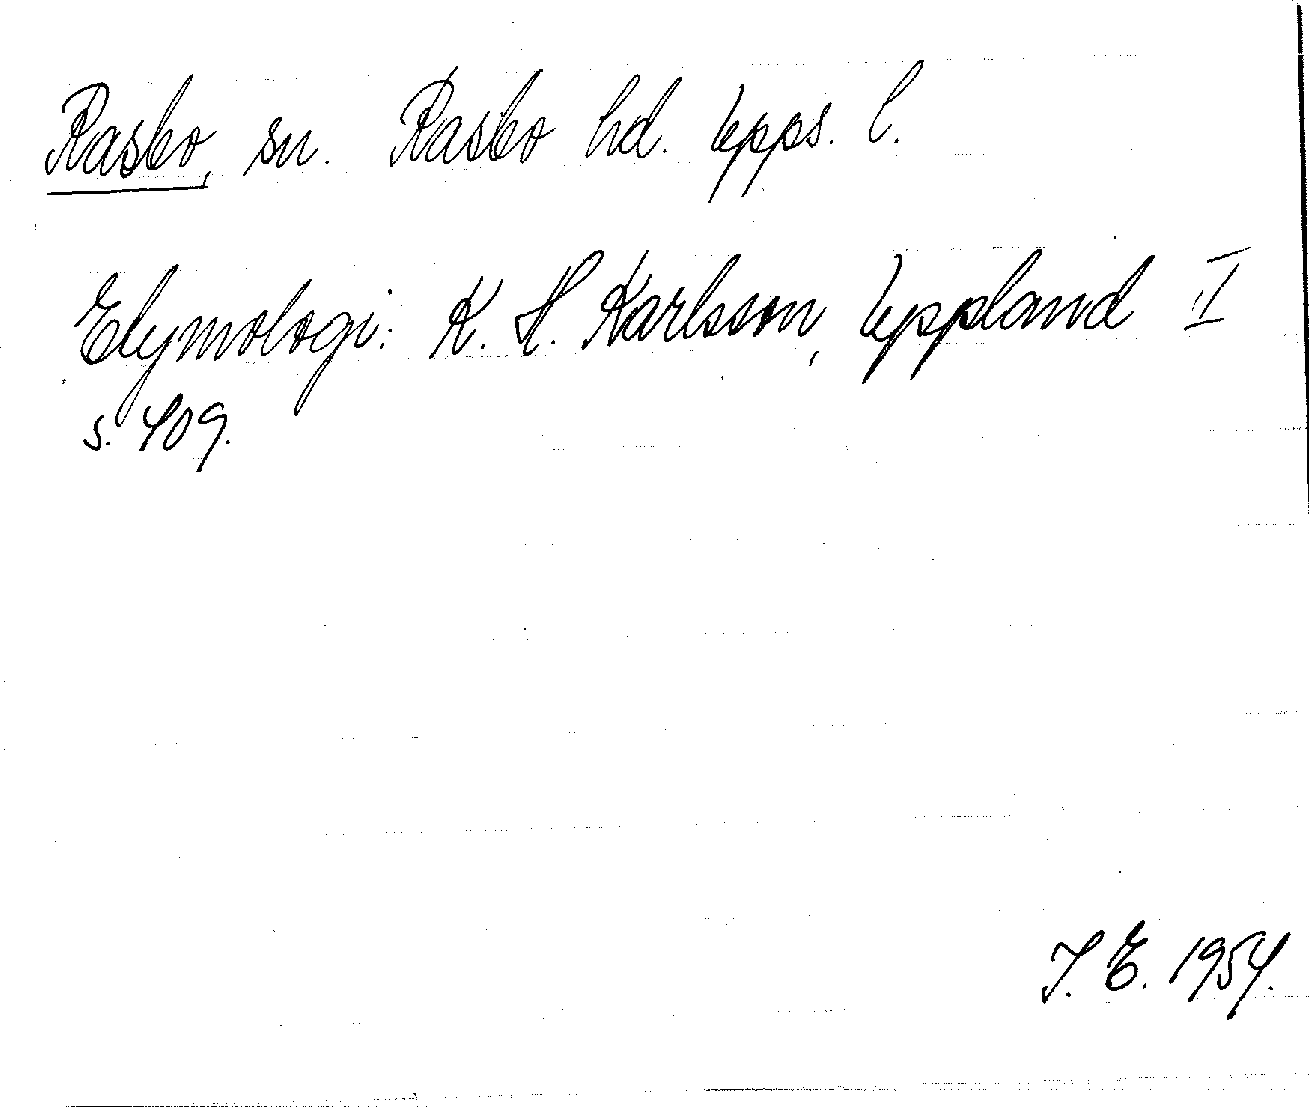 Rasbo, sn. Rasbo hd. Upps. l.
Etymologi: K. H. Karlsson, Uppland II
s. 409.
I. E. 1954.